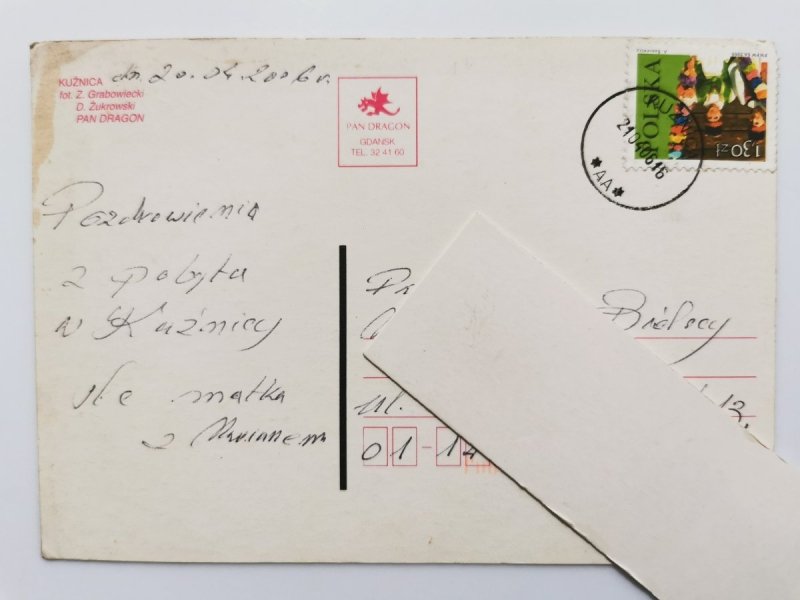 KUŹNICA
fot. Z. Grabowiecki
D. Żukrowski
PAN DRAGON
dn. 20.04.2006 r.
PAN DRAGON
GDAŃSK
TEL. 32 41 60
POLSKA
1,30 zł
210406 16
*AA*
Pozdrowienia
z pobytu
w Kuźnicy
śle matka
z Marianem
Bielscy
ul. 12.
01-14